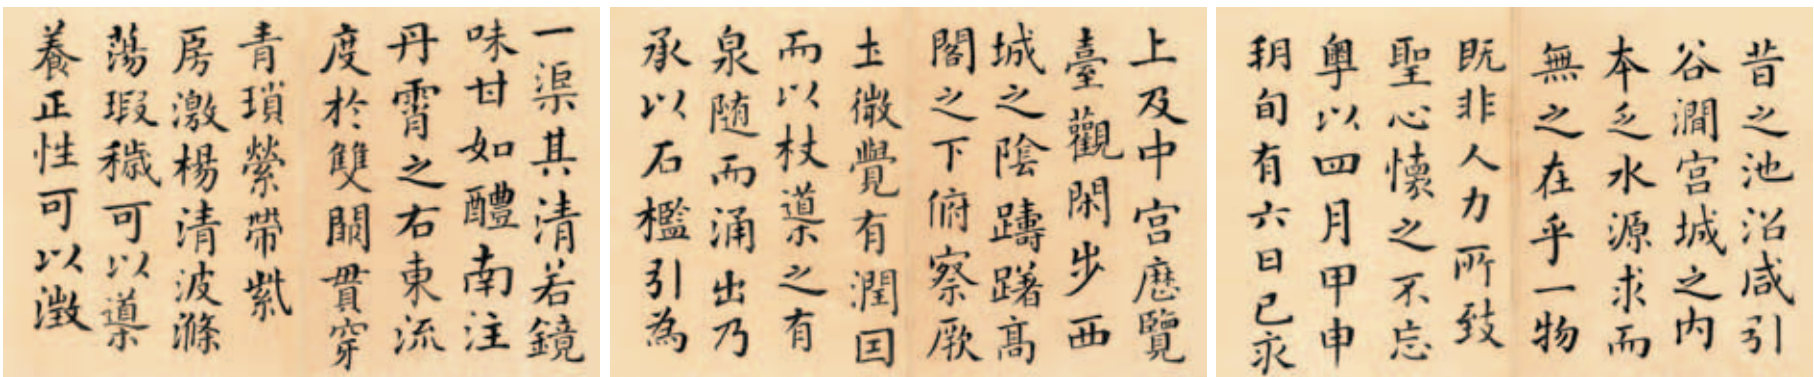 昔之池沼咸引
谷澗宫城之内
本乏水源求而
無之在乎一物
既非人力所致
聖心懷之不忘
粤以四月甲申
朔旬有六日己亥
上及中宫歴覽
臺觀閑步西
城之陰躊躇高
閣之下俯察厥
土微覺有潤因
而以杖導之有
泉随而涌出乃
承以石檻引為
一渠其清若鏡
味甘如醴南注
丹霄之右東流
度於雙闕貫穿
青瑣縈帶紫
房激楊清波滌
蕩瑕穢可以導
養正性可以澂